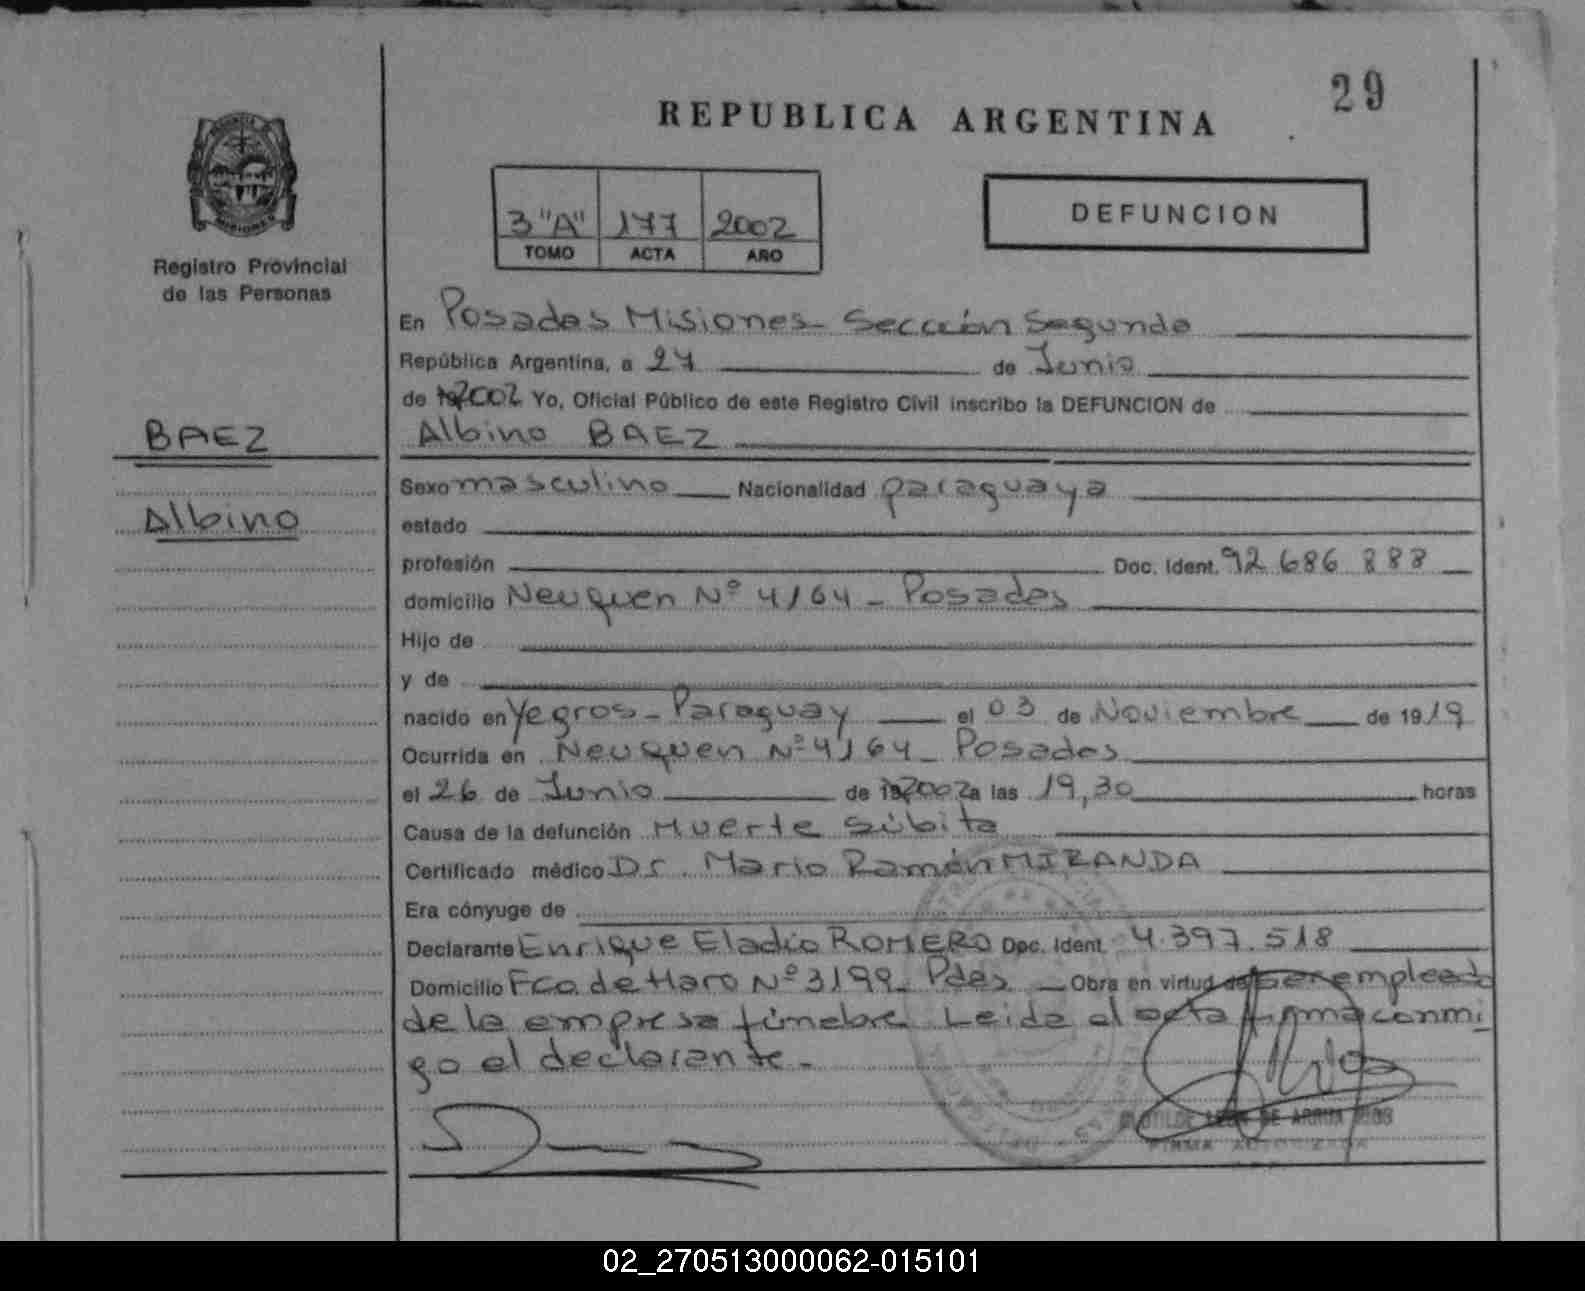 29
REPUBLICA ARGENTINA
PROVINCIA DE
MISIONES
3 "A" 177 2002
TOMO ACTA AÑO
DEFUNCION
Registro Provincial
de las Personas
BAEZ
Albino
En Posadas Misiones - Sección Segunda
República Argentina, a 27 de Junio
de 2002 Yo, Oficial Público de este Registro Civil inscribo la DEFUNCION de
Albino BAEZ
Sexo masculino Nacionalidad paraguaya
estado
profesión Doc. Ident. 92 686 888
domicilio Neuquen Nº 4164 - Posadas
Hijo de
y de
nacido en Yegros - Paraguay el 03 de Noviembre de 1919
Ocurrida en Neuquen Nº 4164 - Posadas
el 26 de Junio de 2002 a las 19,30 horas
Causa de la defunción Muerte Súbita
Certificado médico Dr. Mario Ramón MIRANDA
Era cónyuge de
Declarante Enrique Eladio ROMERO Doc. Ident. 4.397.518
Domicilio Fco. de Haro Nº 3199 - Pdas Obra en virtud de ser empleado
de la empresa fúnebre. Leida el acta firma conmi
go el declarante.-
FIRMA AUTORIZADA
02_270513000062-015101